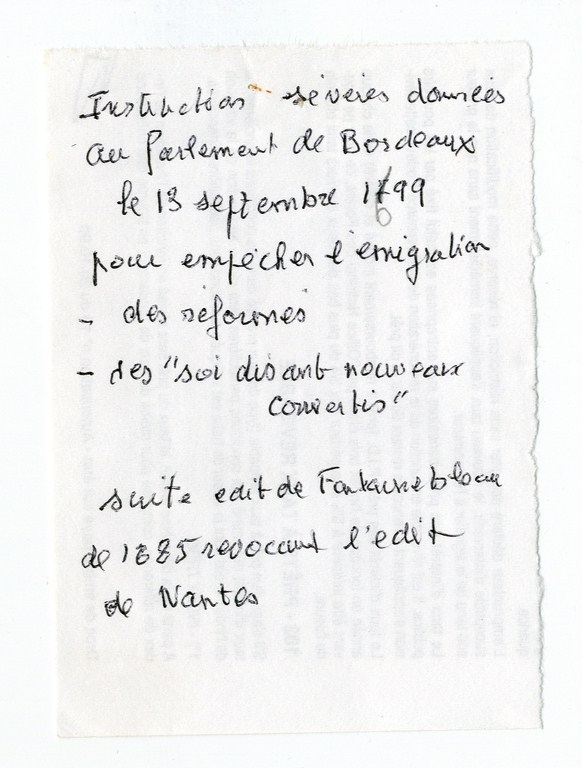 Instructions sévères données
au Parlement de Bordeaux
le 13 septembre 1699
pour empêcher l'émigration
- des réformés
- des "soi disant nouveaux
convertis"
suite edit de Fontainebleau
de 1685 revocant l'edit
de Nantes